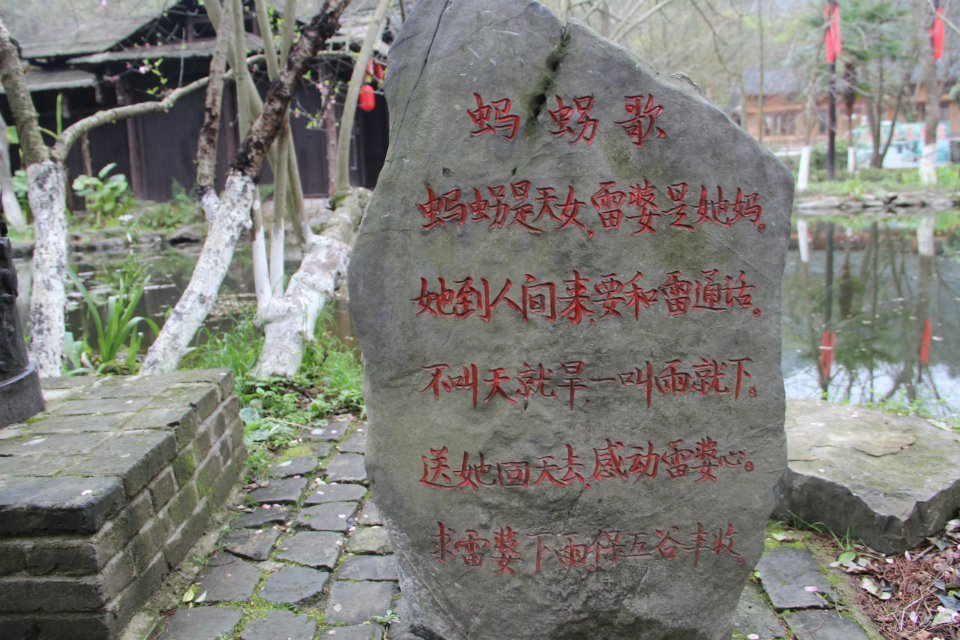 蚂蜴歌
蚂蜴是天女，雷婆是她妈。
她到人间来，要和雷通话。
不叫天就旱，一叫雨就下。
送她回天去，感动雷婆心。
求雷婆下雨保五谷丰收